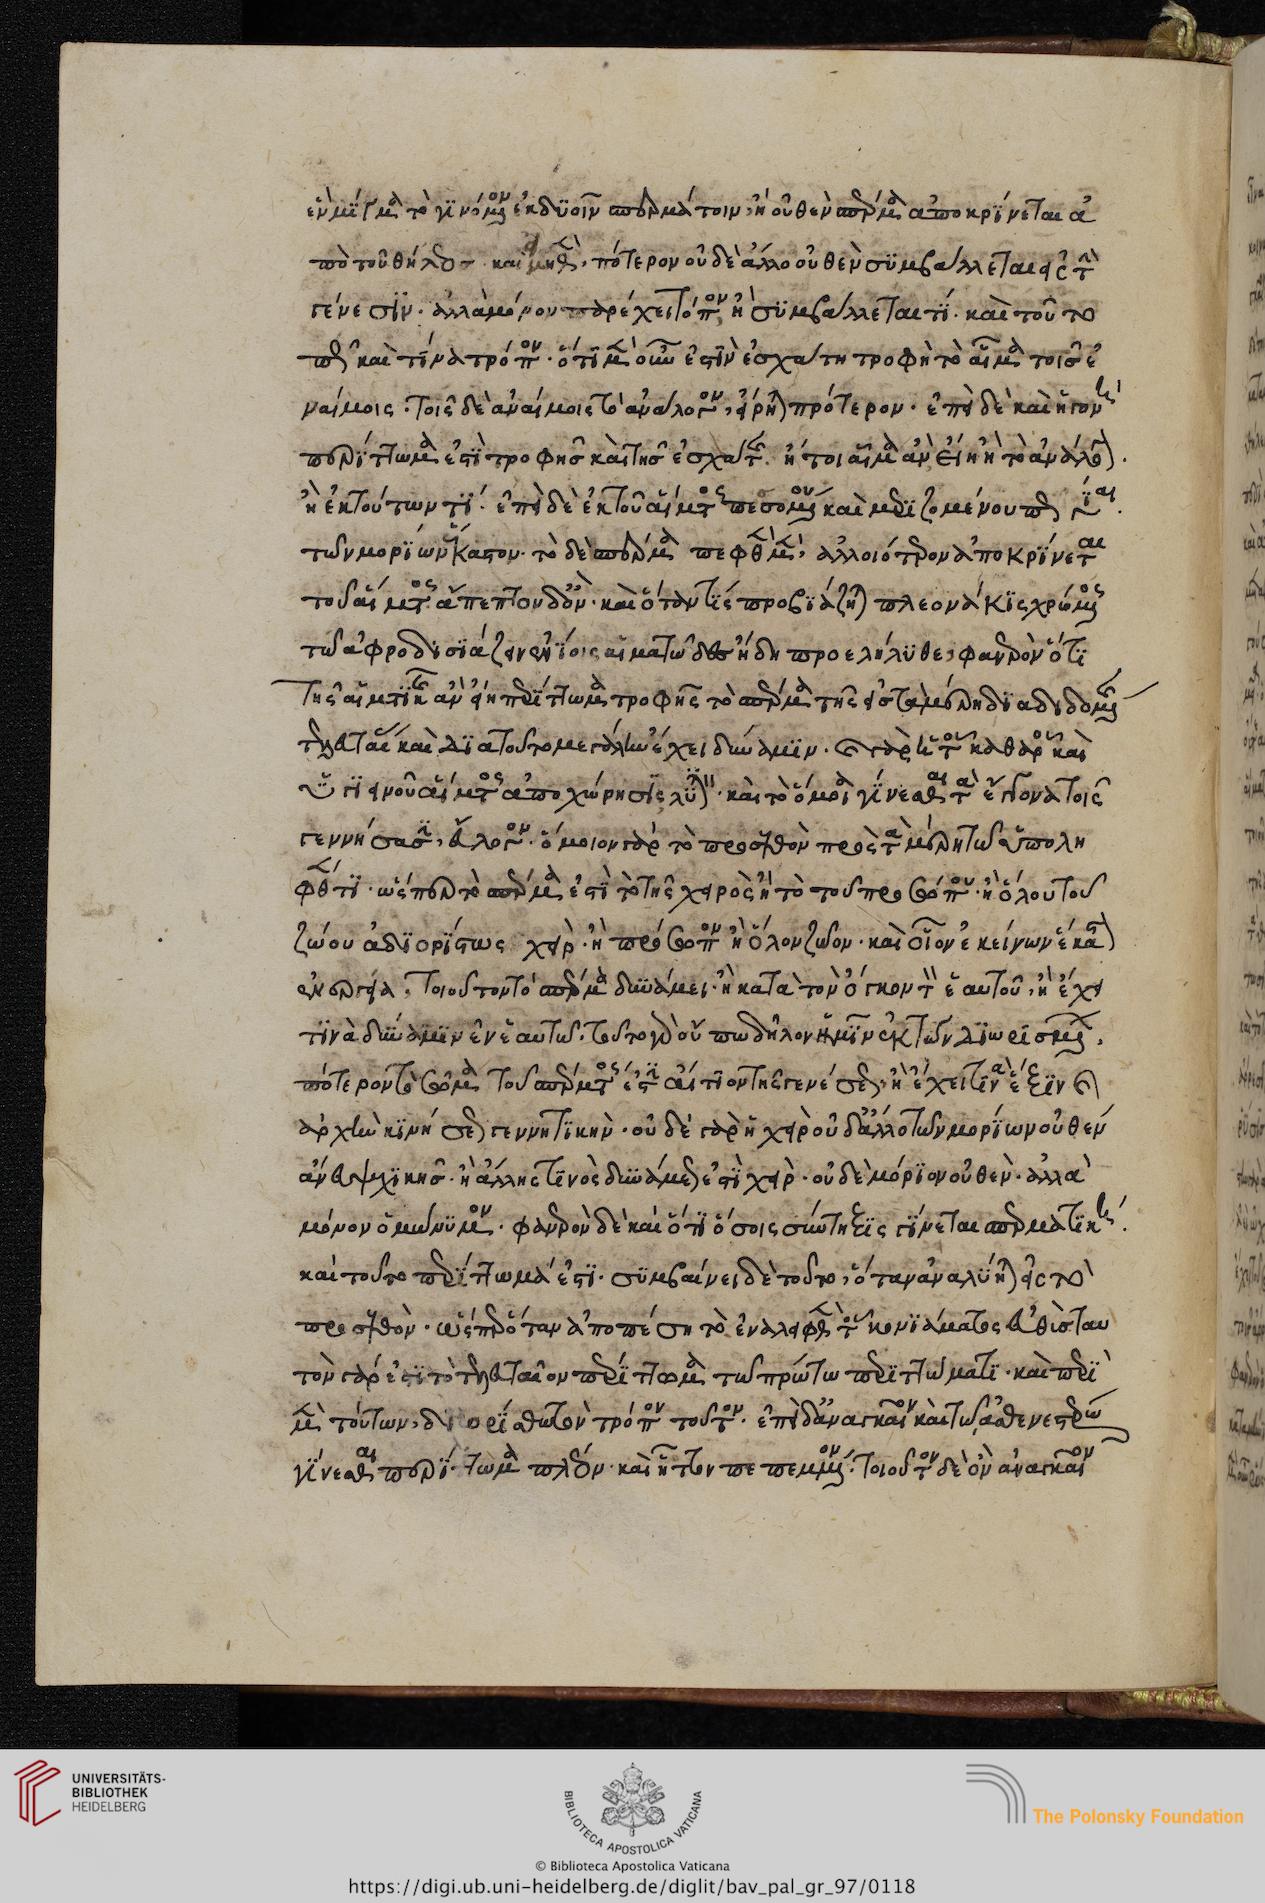 ἓν μίγμα τὸ γινόμενον ἐκ δυοῖν σπερμάτοιν, ἢ οὐθὲν σπέρμα ἀποκρίνεται ἀ
πὸ τοῦ θήλεος. καὶ εἰ μηθὲν, πότερον οὐδὲ ἄλλο οὐθὲν συμβάλλεται εἰς τὴν
γένεσιν. ἀλλὰ μόνον παρέχει τόπον, ἢ συμβάλλεταί τι. καὶ τοῦτο
πῶς καὶ τίνα τρόπον. ὅτι μὲν οὖν ἐστὶν ἐσχάτη τροφὴ τὸ αἷμα τοῖς ἐ
ναίμοις. τοῖς δὲ ἀναίμοις τὸ ἀνάλογον, εἴρηται πρότερον. ἐπεὶ δὲ καὶ ἡ γονὴ
περίττωμά ἐστι τροφῆς καὶ τῆς ἐσχάτης. ἤτοι αἷμα ἂν εἴη ἢ τὸ ἀνάλογον.
ἢ ἐκ τούτων τι. ἐπεὶ δὲ ἐκ τοῦ αἵματος πεσσομένου καὶ μεριζομένου πως γίνεται
τῶν μορίων ἕκαστον. τὸ δὲ σπέρμα πεφθὲν μὲν, ἀλλοιότερον ἀποκρίνεται
τοῦ αἵματος ἄπεπτον δ' ὂν. καὶ ὅταν τις προβιάζηται πλεονάκις χρώμενος
τῷ ἀφροδισιάζειν ἐνίοις αἱματῶδες ἤδη προελήλυθε, φανερὸν ὅτι
τῆς αἱματικῆς ἂν εἴη περίττωμα τροφῆς τὸ σπέρμα τῆς εἰς τὰ μέρη διαδιδομένης
τελευταίας καὶ διὰ τοῦτο μεγάλην ἔχει δύναμιν.
γεννήσασιν, εὔλογον. ὅμοιον γὰρ τὸ προσελθὸν πρὸς τὰ μέρη τῷ ὑπολη
φθέντι. ὥσπερ τὸ σπέρμα ἐστὶ τὸ τῆς χειρὸς ἢ τὸ τοῦ προσώπου. ἢ ὅλου τοῦ
ζώου ἀδιορίστως χεὶρ. ἢ πρόσωπον ἢ ὅλον ζῷον. καὶ οἷον ἐκείνων ἕκαστον
ἐνεργείᾳ, τοιοῦτον τὸ σπέρμα δυνάμει. ἢ κατὰ τὸν ὄγκον τὸν ἑαυτοῦ, ἢ ἔχει
τινὰ δύναμιν ἐν ἑαυτῷ. τοῦτο γὰρ οὔπω δῆλον ἡμῖν ἐκ τῶν διωρισμένων.
πότερον τὸ σῶμα τοῦ σπέρματός ἐστι αἴτιον τῆς γενέσεως, ἢ ἔχει τινὰ ἕξιν καὶ
ἀρχὴν κινήσεως γεννητικὴν. οὐδὲ γὰρ ἡ χεὶρ οὐδ' ἄλλο τῶν μορίων οὐθὲν
ἄνευ ψυχικῆς. ἢ ἄλλης τινὸς δυνάμεώς ἐστι χεὶρ. οὐδὲ μόριον οὐθὲν. ἀλλὰ
μόνον ὁμώνυμον. φανερὸν δὲ καὶ ὅτι ὅσοις σύντηξις γίνεται σπερματικὴ.
καὶ τοῦτο περίττωμά ἐστι. συμβαίνει δὲ τοῦτο, ὅταν ἀναλύηται εἰς τὸ
προσελθὸν. ὥσπερ ὅταν ἀποπέσῃ τὸ ἐναλειφθὲν τοῦ κονιάματος εὐθὺς ταυ
τὸν γάρ ἐστι τὸ τελευταῖον περίττωμα τῷ πρώτῳ περιττώματι. καὶ περὶ
μὲν τούτων, διωρίσθω τὸν τρόπον τοῦτον. ἐπεὶ δ' ἀναγκαῖον καὶ τῷ ἀσθενεστέρῳ
γίνεσθαι περίττωμα πλεῖον. καὶ ἧττον πεπεμμένον. τοιοῦτον δὲ ὂν ἀναγκαῖον
UNIVERSITÄTS-
BIBLIOTHEK
HEIDELBERG
BIBLIOTECA APOSTOLICA VATICANA
The Polonsky Foundation
© Biblioteca Apostolica Vaticana
https://digi.ub.uni-heidelberg.de/diglit/bav_pal_gr_97/0118